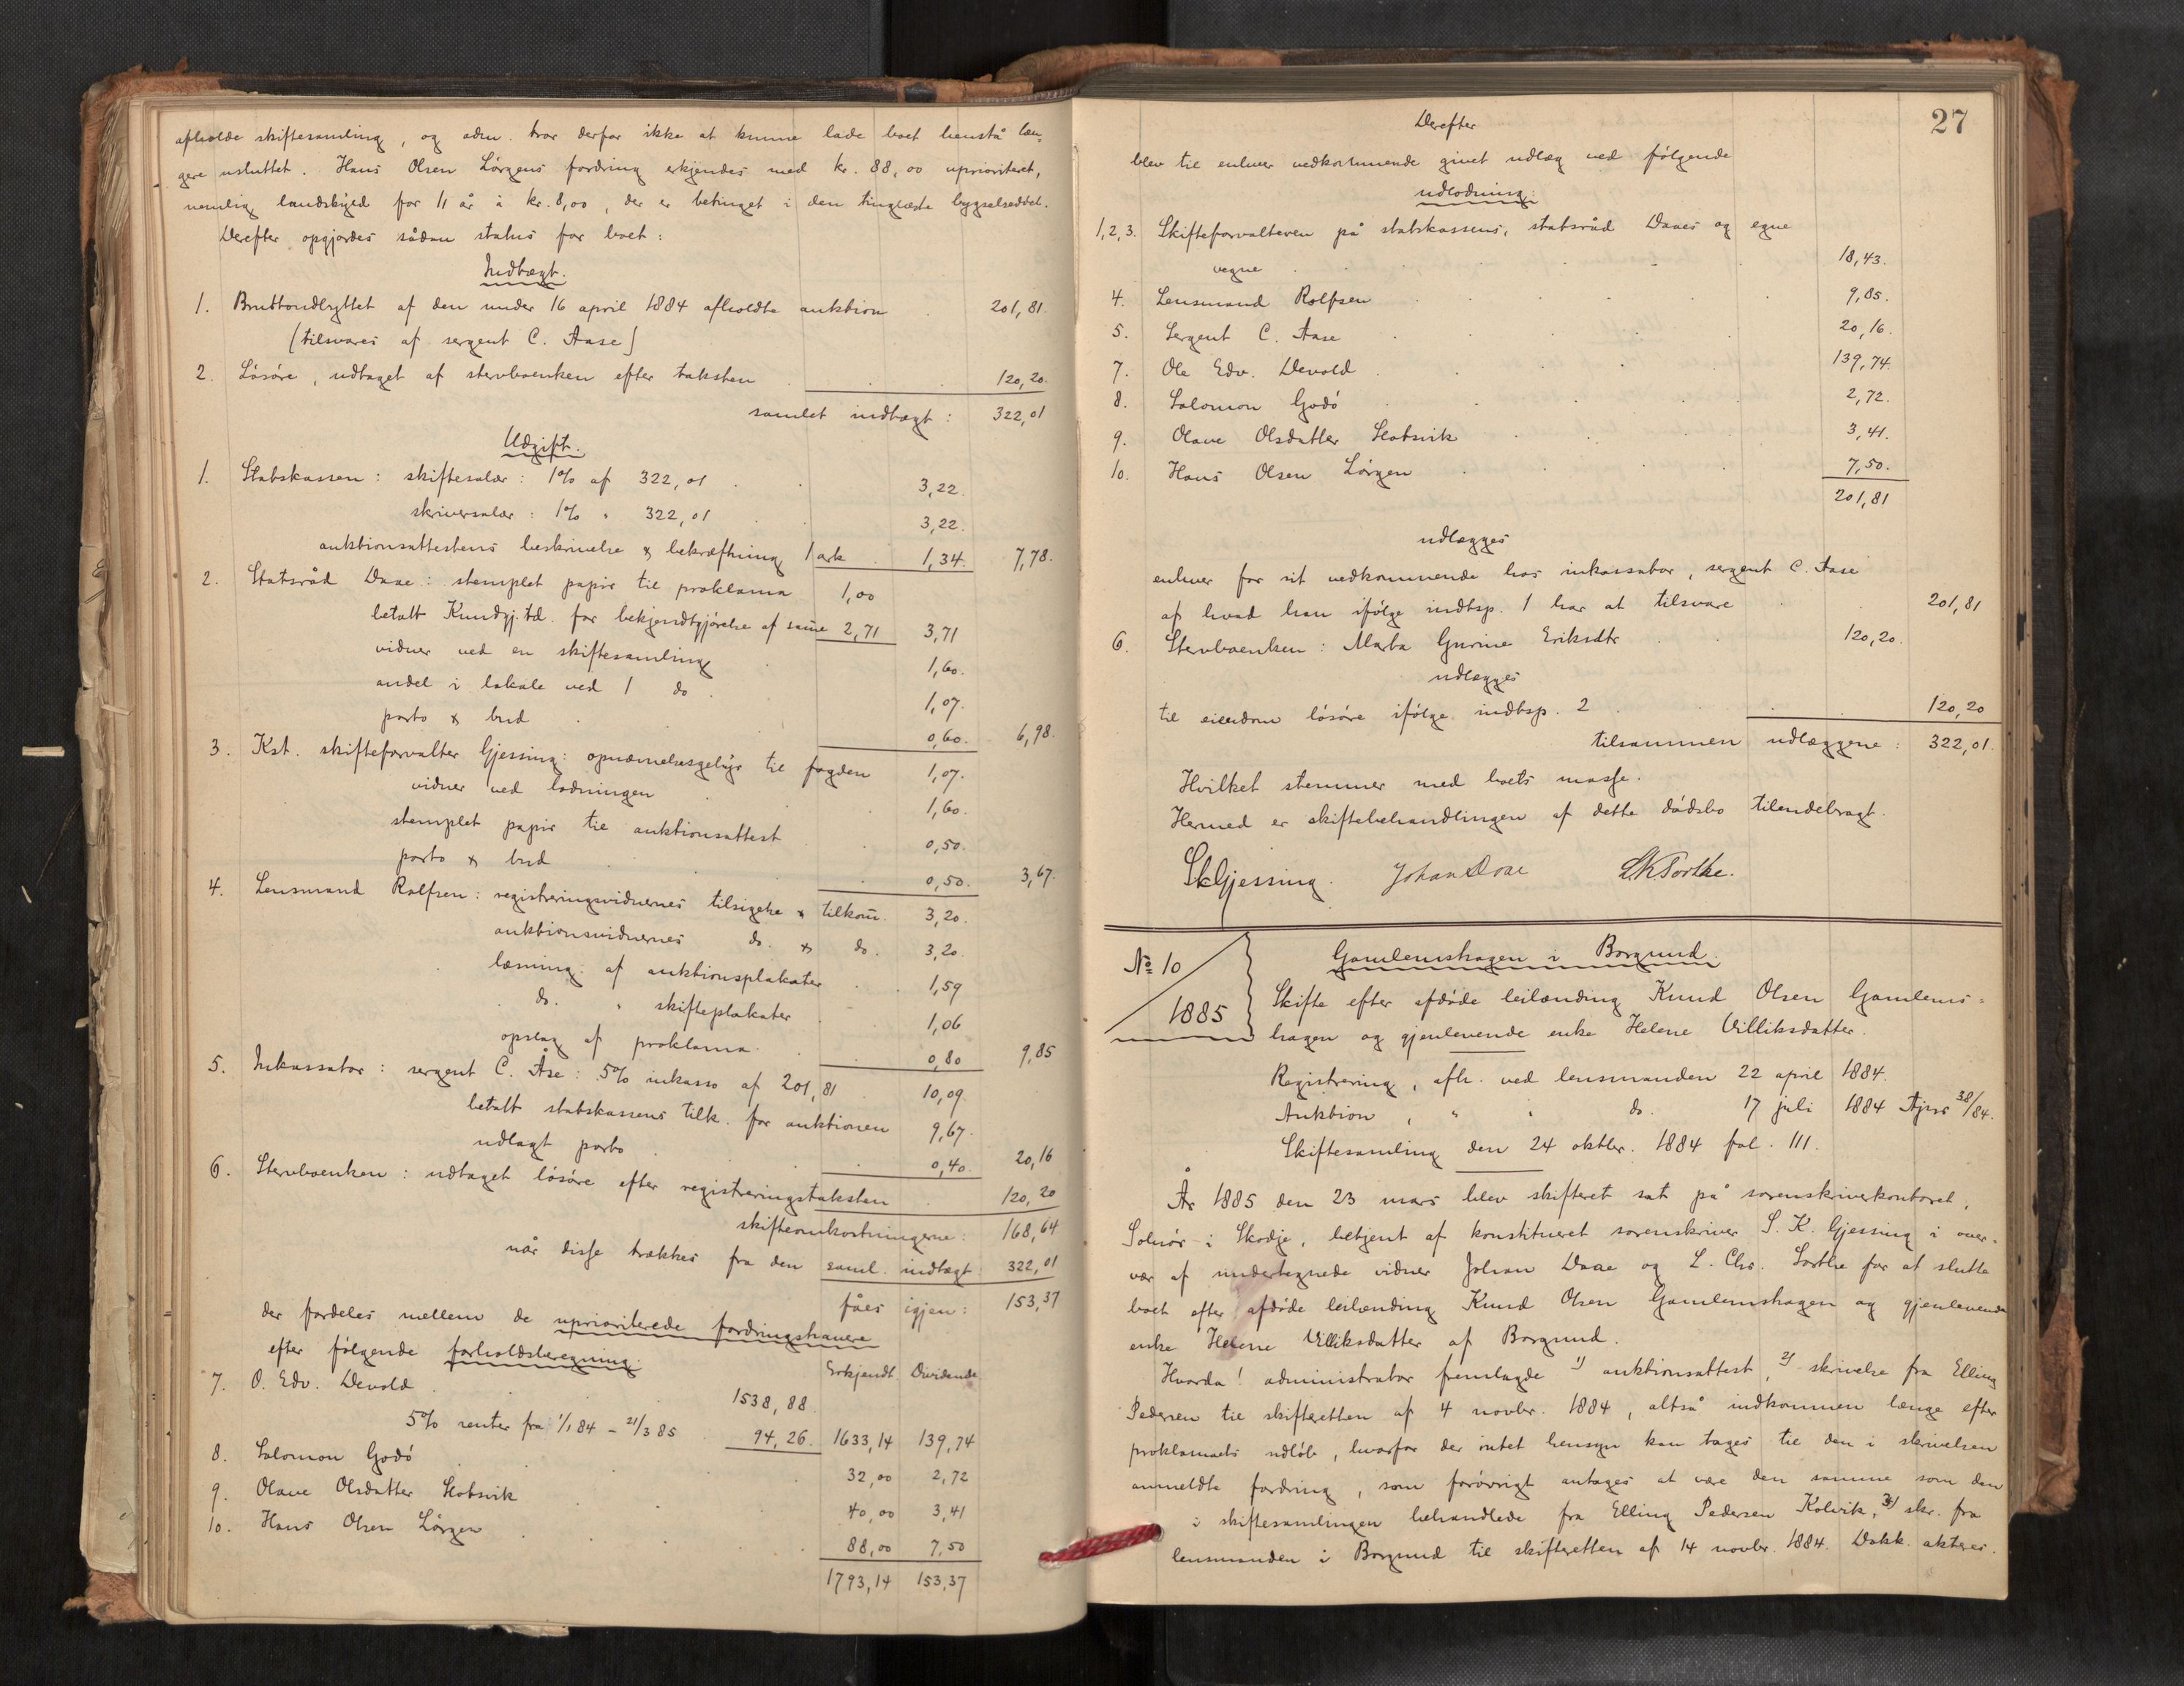 afholde skiftesamling, og adm. tror derfor ikke at kunne lade boet henstå læn-
gere usluttet. Hans Olsen Lørgens fordring erkjendes med kr. 88,00 uprioriteret,
nemlig landskyld for 11 år à kr. 8,00, der er betinget i den tinglæste bygselseddel.
Derefter opgjordes sådan status for boet:
Indtægt.
1. Bruttoudbyttet af den under 16 april 1884 afholdte auktion 201,81.
(tilsvares af sergent C. Aase)
2. Løsøre, udtaget af stervboenken efter taksten 120,20.
samlet indtægt: 322,01
Udgift.
1. Statskassen: skiftesalær: 1% af 322,01 3,22.
skriversalær: 1% " 322,01 3,22.
auktionsattestens beskrivelse & bekræftning 1 ark 1,34. 7,78.
2. Statsråd Daae: stemplet papir til proklama 1,00
betalt Kundgj.td. for bekjendtgjørelse af samme 2,71 3,71
vidner ved en skiftesamling 1,60.
andel i lokale ved 1 do. 1,07.
porto & bud 0,60. 6,98.
3. Kst. skifteforvalter Gjessing: opnævnelsesgebyr til fogden 1,07.
vidner ved lodningen 1,60.
stemplet papir til auktionsattest 0,50.
porto & bud 0,50. 3,67.
4. Lensmand Rolfsen: registreringsvidnernes tilsigelse & tilkom. 3,20.
auktionsvidnernes do. & do. 3,20.
læsning af auktionsplakater 1,59
do. " skifteplakater 1,06
opslag af proklama 0,80 9,85
5. Inkassator: sergent C. Åse: 5% inkasso af 201,81 10,09.
betalt statskassens tilk. for auktionen 9,67.
udlagt porto 0,40. 20,16
6. Stervboenken: udtaget løsøre efter registreringstaksten 120,20
skifteomkostningerne: 168,64
når disse trækkes fra den saml. indtægt 322,01
fåes igjen: 153,37
der fordeles mellem de uprioriterede fordringshavere
efter følgende forholdsberegning.
Erkjendt. Dividende
7. O. Edv. Devold 1538,88.
5% renter fra 1/1 84 – 21/3 85 94,26. 1633,14 139,74
8. Salomon Godø 32,00 2,72
9. Olave Olsdatter Slotsvik 40,00 3,41
10. Hans Olsen Lørgen 88,00 7,50
1793,14 153,37
27
Derefter
blev til enhver vedkommende givet udlæg ved følgende
udlodning:
1,2,3. Skifteforvalteren på statskassens, statsråd Daaes og egne
vegne 18,43.
4. Lensmand Rolfsen 9,85.
5. Sergent C. Aase 20,16.
7. Ole Edv. Devold 139,74.
8. Salomon Godø 2,72.
9. Olave Olsdatter Slotsvik 3,41.
10. Hans Olsen Lørgen 7,50.
201,81
udlægges
enhver for sit vedkommende hos inkassator, sergent C. Aase
af hvad han ifølge indtsp. 1 har at tilsvare 201,81
6. Stervboenken: Marta Gurine Eriksdtr 120,20.
udlægges
til eiendom løsøre ifølge indtsp. 2 120,20
tilsammen udlæggene: 322,01.
Hvilket stemmer med boets masse.
Hermed er skiftebehandlingen af dette dødsbo tilendebragt.
SKGjessing. Johan Daae
No 10
1885
Gamlemshagen i Borgund.
Skifte efter afdøde leilænding Knud Olsen Gamlems-
hagen og gjenlevende enke Helene Villiksdatter.
Registrering, afh. ved lensmanden 22 april 1884.
Auktion, " " do. 17 juli 1884 Ajour 38/84.
Skiftesamling den 24 oktbr. 1884 fol. 111.
År 1885 den 23 mars blev skifteret sat på sorenskriverkontoret,
Solnør i Skodje, betjent af konstitueret sorenskriver S. K. Gjessing i over-
vær af undertegnede vidner Johan Daae og L. Chr. Torthe for at slutte
boet efter afdøde leilænding Knud Olsen Gamlemshagen og gjenlevende
enke Helene Villiksdatter af Borgund.
Hvorda! administrator fremlagde 1) auktionsattest, 2) skrivelse fra Elling
Pedersen til skifteretten af 4 novbr. 1884, altså indkommen længe efter
proklamaets udløb, hvorfor der intet hensyn kan tages til den i skrivelsen
anmeldte fordring, som forøvrigt antages at være den samme som den
i skiftesamlingen behandlede fra Elling Pedersen Kolvik, 3) skr. fra
lensmanden i Borgund til skifteretten af 14 novbr. 1884. Dokk. akteres.